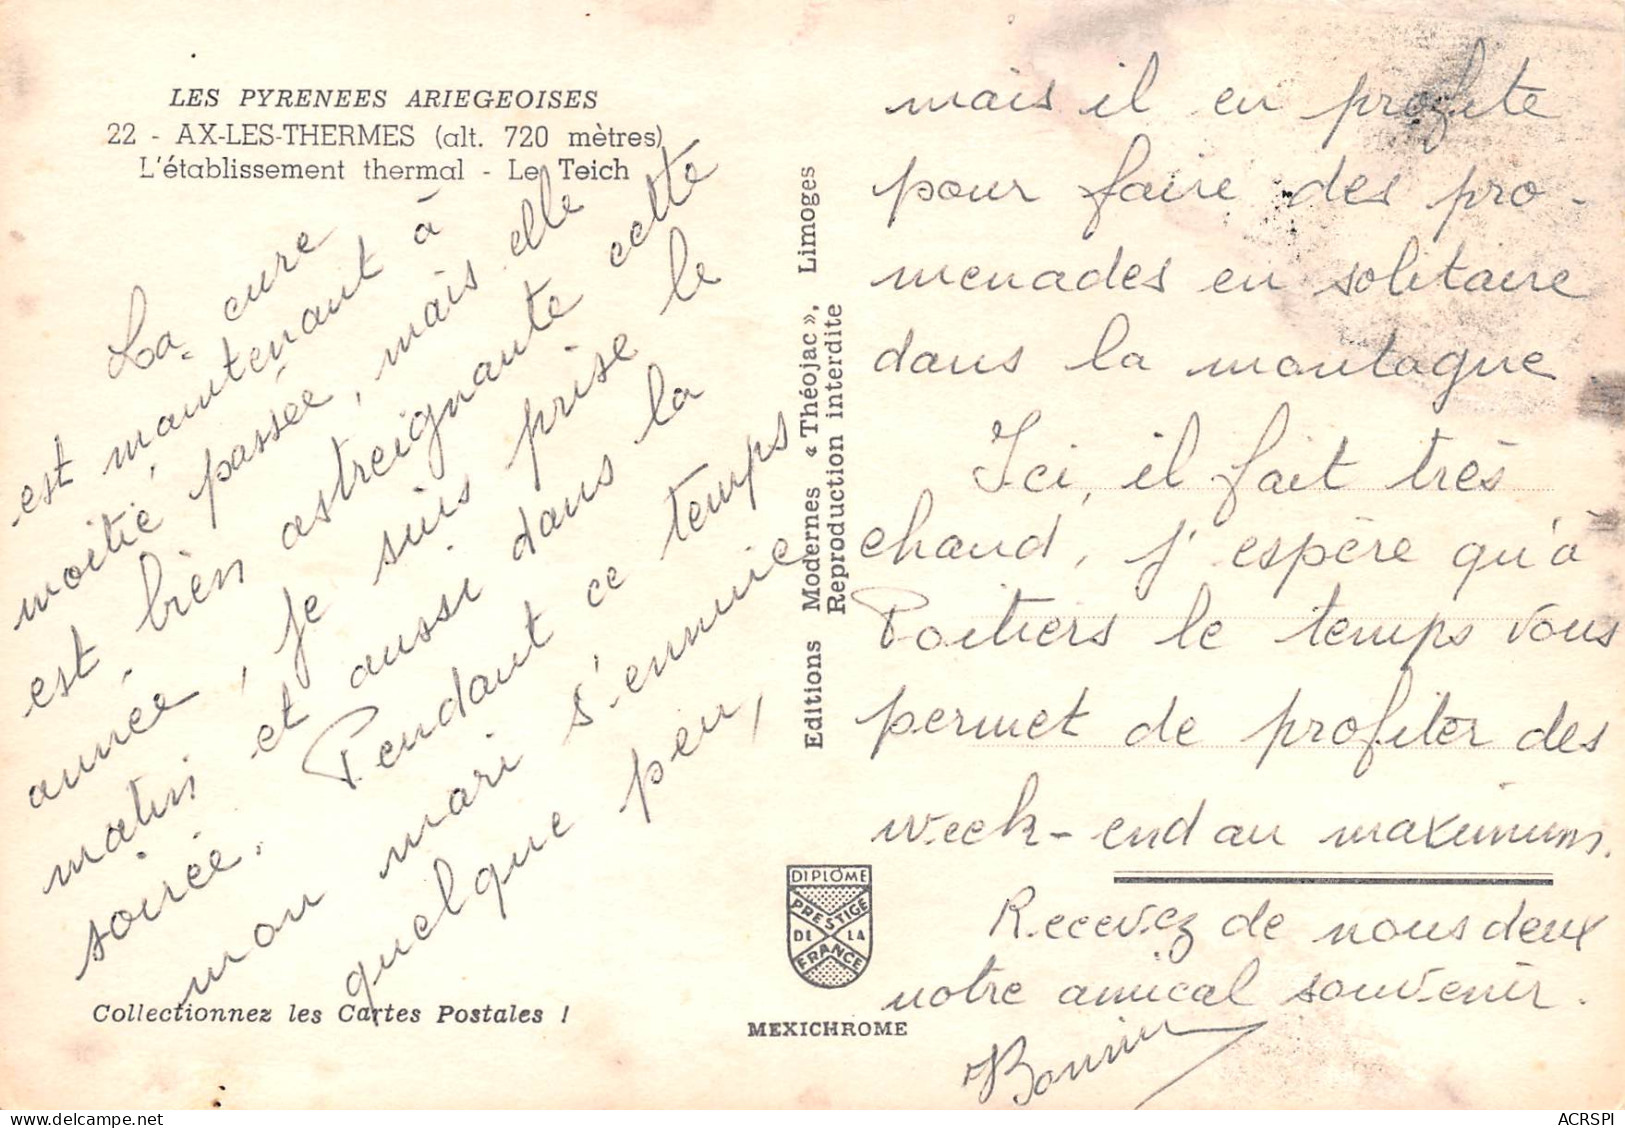 LES PYRENEES ARIEGEOISES
22 - AX-LES-THERMES (alt. 720 mètres)
L'établissement thermal - Le Teich
La cure
est maintenant à
moitié passée, mais elle
est bien astreignante cette
année, je suis prise le
matin et aussi dans la
soirée. Pendant ce temps
mon mari s'ennuie
quelque peu,
mais il en profite
pour faire des pro-
menades en solitaire
dans la montagne
Ici, il fait très
chaud, j'espère qu'à
Poitiers le temps vous
permet de profiter des
week-end au maximum.
Recevez de nous deux
notre amical souvenir.
Editions Modernes « Théojac », Limoges
Reproduction interdite
DIPLÔME
PRESTIGE
DE LA
FRANCE
MEXICHROME
Collectionnez les Cartes Postales !
ACRSPI